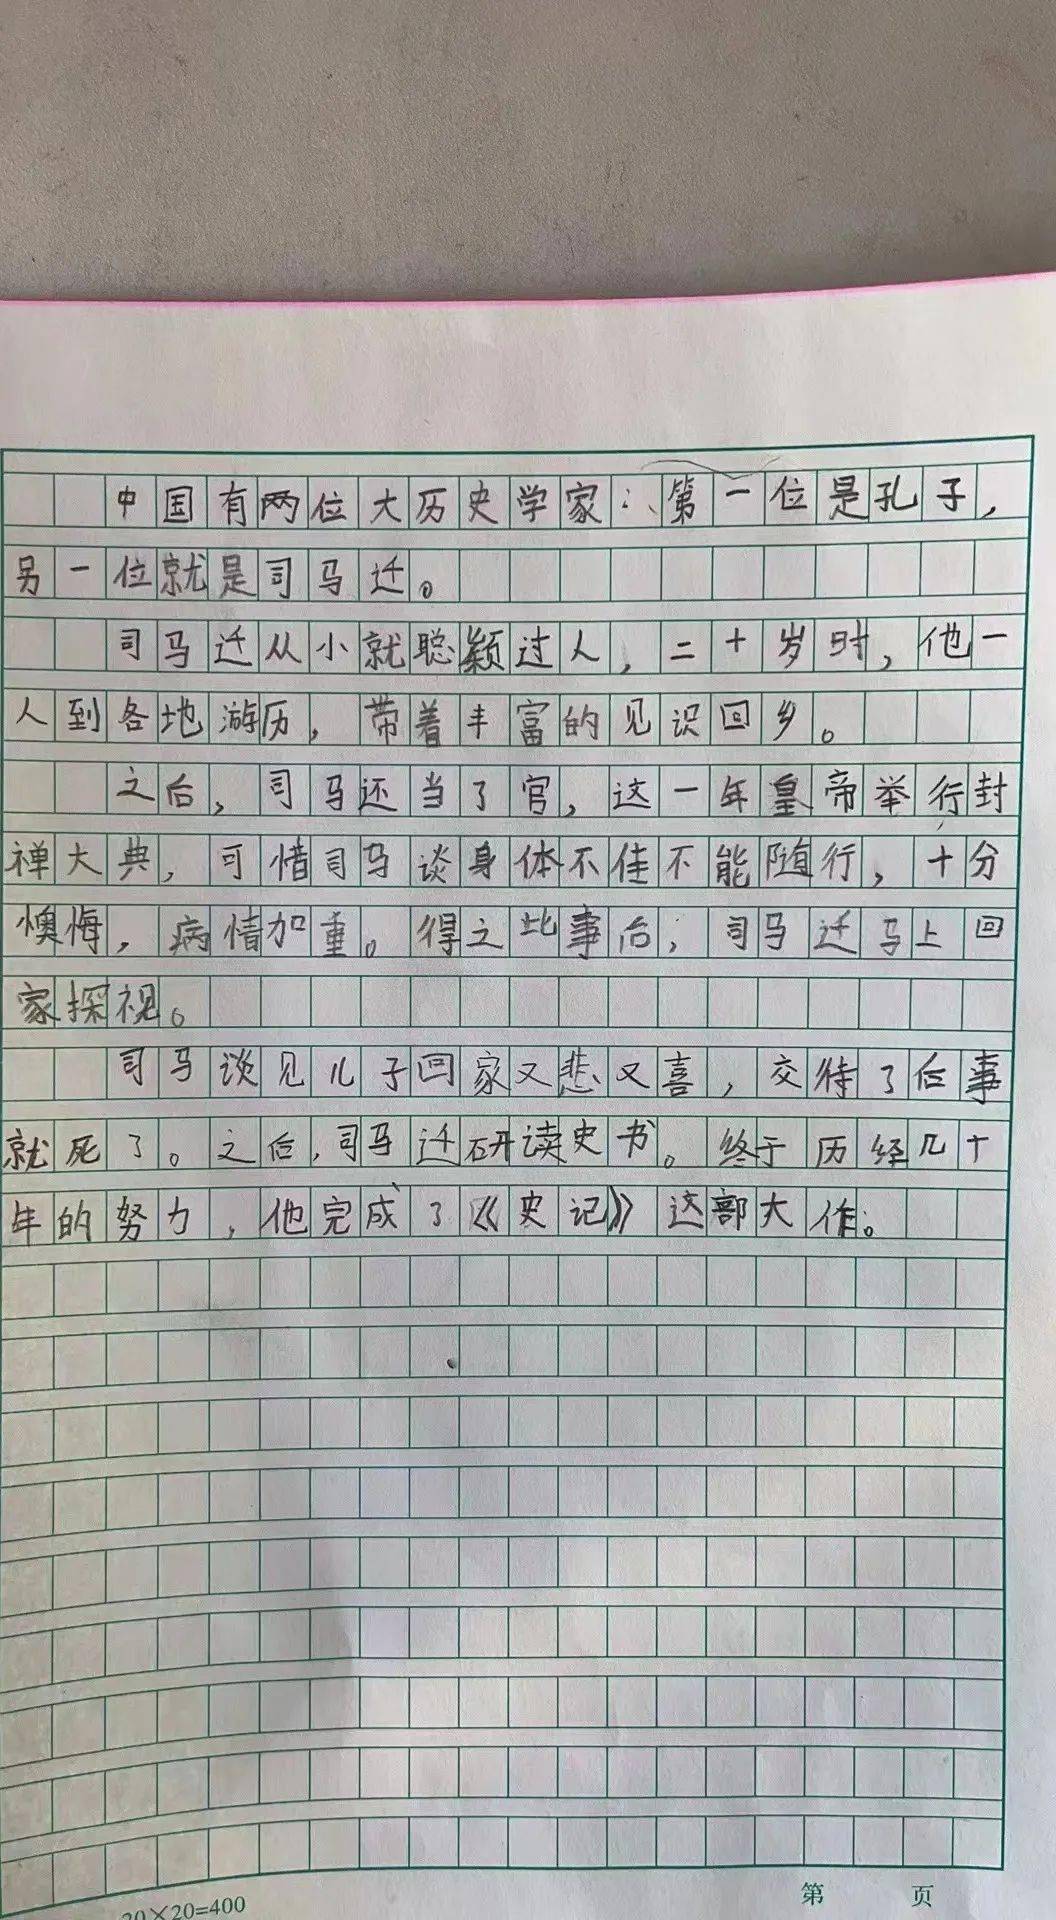 中国有两位大历史学家：第一位是孔子，
另一位就是司马迁。
司马迁从小就聪颖过人，二十岁时，他一
人到各地游历，带着丰富的见识回乡。
之后，司马还当了官，这一年皇帝举行封
禅大典，可惜司马谈身体不佳不能随行，十分
懊悔，病情加重。得之此事后，司马迁马上回
家探视。
司马谈见儿子回家又悲又喜，交待了后事
就死了。之后，司马迁研读史书。终于历经几十
年的努力，他完成了《史记》这部大作。
20×20=400
第 页